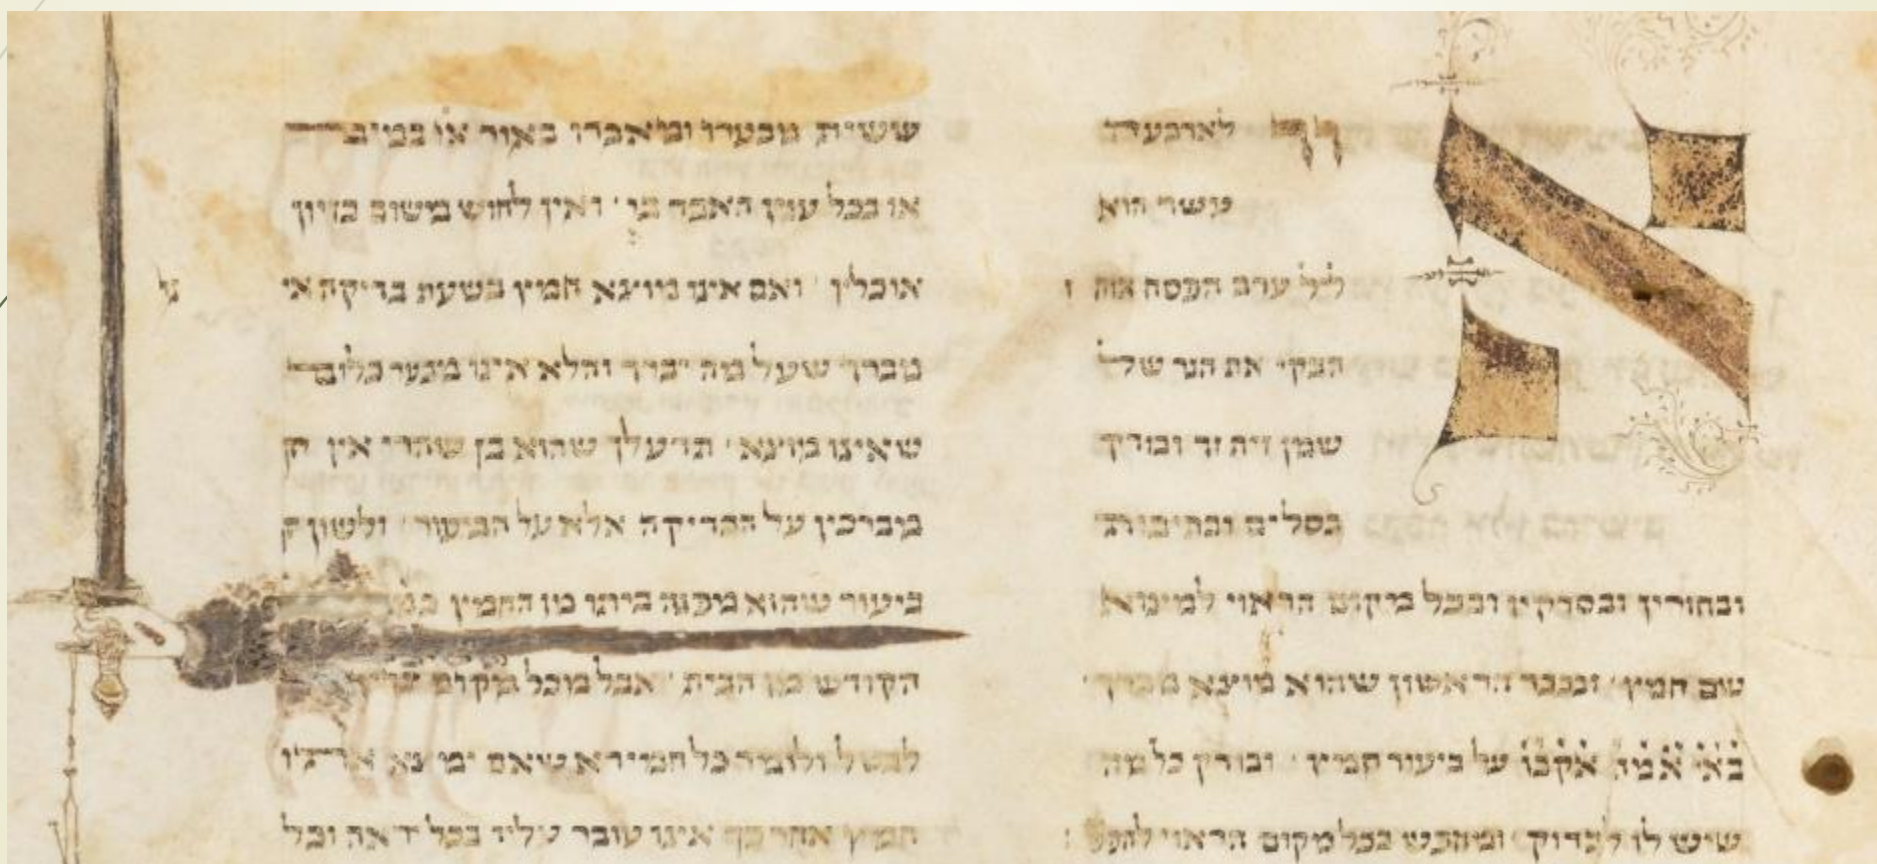 א
ור לארבעה
עשר הוא
ליל ערב הפסח
את הנר של
שמן זית זך ובודק
בסלים ובתיבות
ובחורין ובסדקין ובכל מקום הראוי למצוא
שם חמץ הראשון שהוא מוצא מברך
על ביעור חמץ ובודק כל מה
שיש לו לבדוק ומחפש בכל מקום הראוי
ששית מבערו ומאבדו באור או במים
או בכל ענין האבד ואין לחוש משום בזיון
אוכלין ואם אינו מוצא חמץ בשעת בדיקה אי
מברך שעל מה יברך והלא אינו מבער כלום
שאינו מוצא תדע לך שהוא כן שהרי אין
מברכין על הבדיקה אלא על הביעור ולשון
ביעור שהוא מפנה ביתו מן החמץ
הקודש מן הבית אבל מכל מקום
לבטל ולומר כל חמירא שאם ימצא
חמץ אחר כך אינו עובר עליו בבל יראה ובל